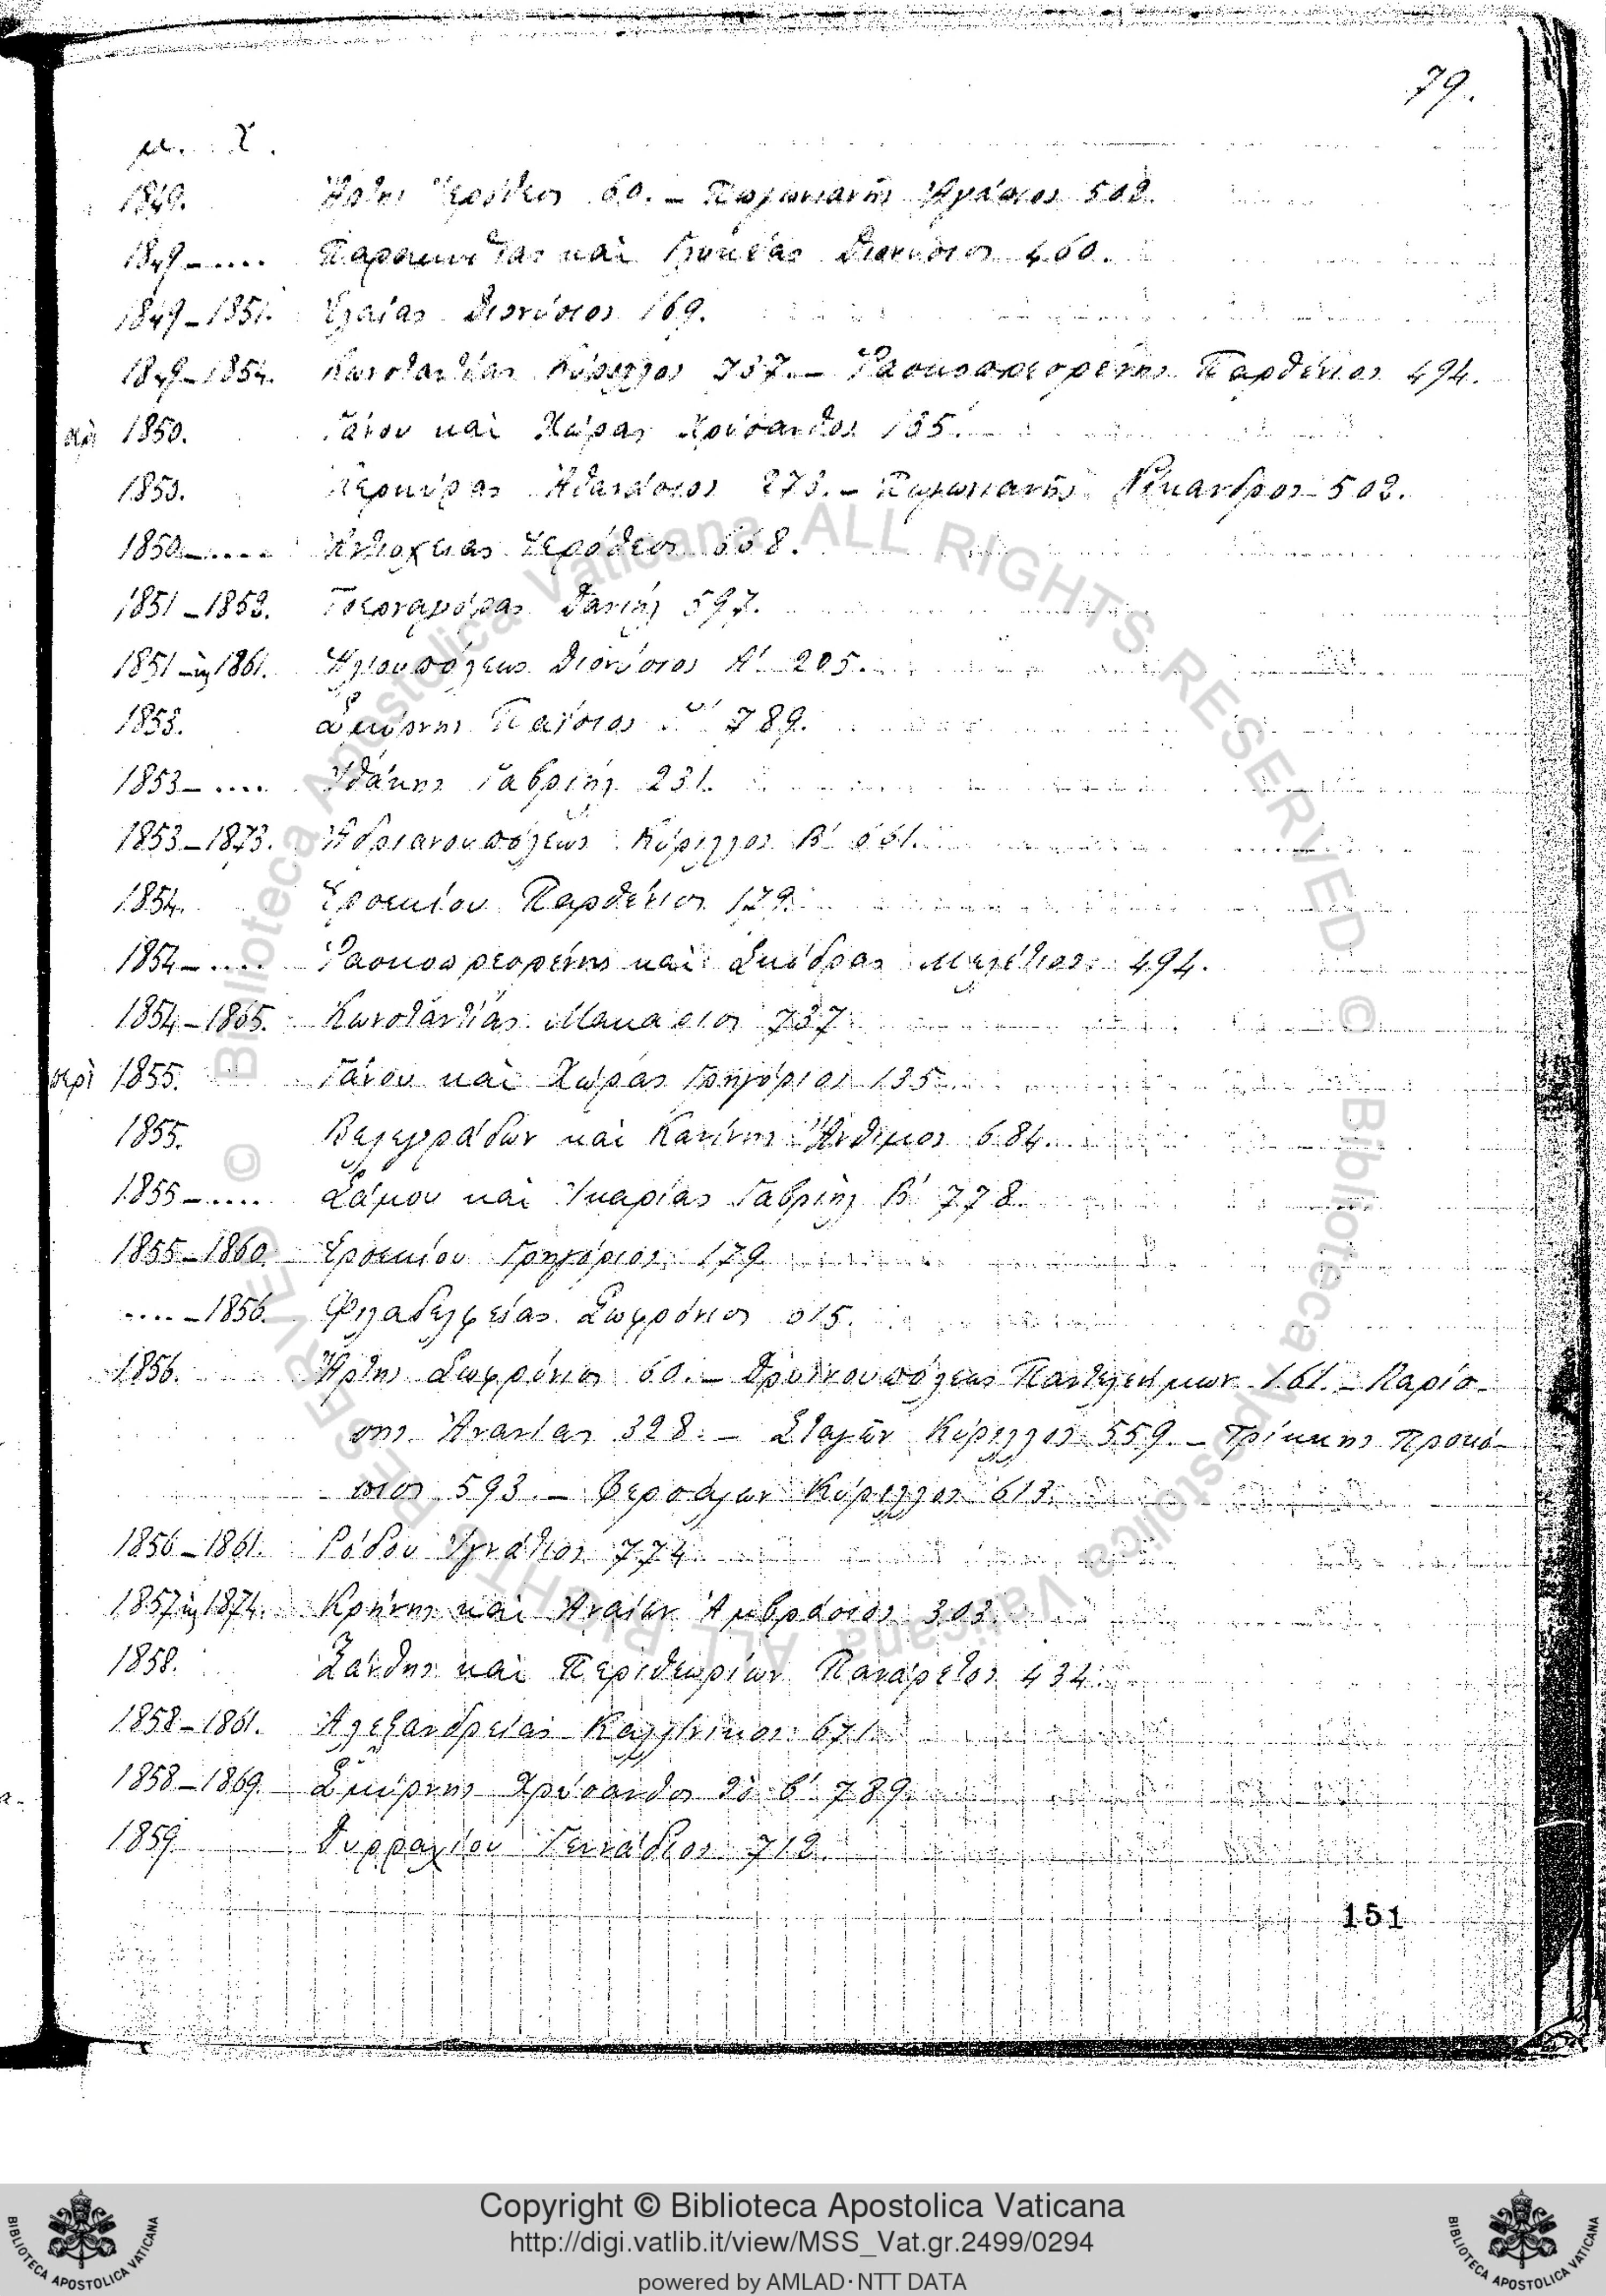 79.
μ. Χ.
1849. Ἄρτης Ἱερόθεος 60. – Πωγωνιανῆς 502.
1849 – .... Παραμυθίας καὶ Διονύσιος 460.
1849 – 1851. Ἐλαίας Διονύσιος 169.
1849 – 1854. Κωνσταντίας Κύριλλος 737. – Ῥασκοπρεσρένης Παρθένιος 494.
περὶ 1850. Γάνου καὶ Χώρας Χρύσανθος 135.
1850. Κερκύρας Ἀθανάσιος 273. – Πωγωνιανῆς Νίκανδρος 502.
1850 – .... Ἀντιοχείας Ἱερόθεος 668.
1851 – 1852. Δανιὴλ 597.
1851 – 1861. Ἡλιουπόλεως Διονύσιος Α΄ 205.
1853. Σμύρνης Παΐσιος 789.
1853 – .... Ἰθάκης Γαβριὴλ 231.
1853 – 1873. Ἀδριανουπόλεως Κύριλλος Β΄ 661.
1854. Ἐρσεκίου Παρθένιος 179.
1854 – .... Ῥασκοπρεσρένης καὶ Σκόδρας Μελέτιος 494.
1854 – 1865. Κωνσταντίας Μακάριος 737
περὶ 1855. Γάνου καὶ Χώρας Γρηγόριος 135.
1855. Βελεγράδων καὶ Κανίνης Ἄνθιμος 684.
1855 – .... Σάμου καὶ Ἰκαρίας Γαβριὴλ Β΄ 778.
1855 – 1860. Ἐρσεκίου Γρηγόριος 179
.... – 1856. Φιλαδελφείας Σωφρόνιος 615.
1856. Ἄρτης Σωφρόνιος 60. – Δρυϊνουπόλεως Παντελεήμων 161. – Λαρίσ-
σης Ἀνανίας 328. – Σταγῶν Κύριλλος 559. – Τρίκκης Προκό-
πιος 593. – Φερσάλων Κύριλλος 613.
1856 – 1861. Ῥόδου Ἰγνάτιος 774.
1857 1874. Κρήνης καὶ Ἀναίων Ἀμβρόσιος 303.
1858. Ξάνθης καὶ Περιθεωρίων Πανάρετος 434.
1858 – 1861. Ἀλεξανδρείας Καλλίνικος 671.
1858 – 1869. Σμύρνης Χρύσανθος τὸ β΄ 789.
1859. Δυρραχίου Γεννάδιος 712.
151
© Biblioteca Apostolica Vaticana ALL RIGHTS RESERVED
© Biblioteca Apostolica Vaticana ALL RIGHTS RESERVED
BIBLIOTECA APOSTOLICA VATICANA
Copyright © Biblioteca Apostolica Vaticana
http://digi.vatlib.it/view/MSS_Vat.gr.2499/0294
powered by AMLAD·NTT DATA
BIBLIOTECA APOSTOLICA VATICANA